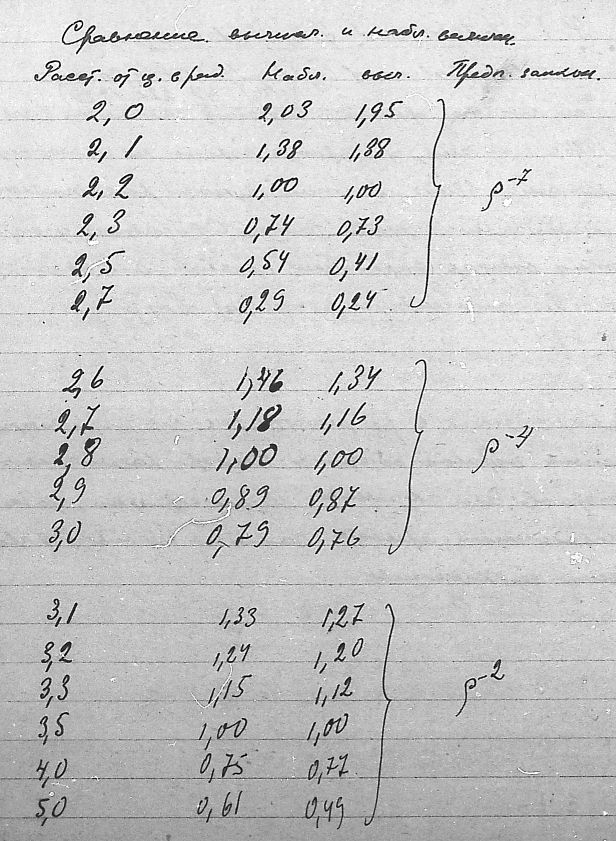 Сравнение. вычисл. и набл. величин.
Расст. от ц. в рад. Набл. выч. Предп. закон.
2,0 2,03 1,95
2,1 1,38 1,38
2,2 1,00 1,00 ρ⁻⁷
2,3 0,74 0,73
2,5 0,54 0,41
2,7 0,29 0,24
2,6 1,46 1,34
2,7 1,18 1,16
2,8 1,00 1,00 ρ⁻⁴
2,9 0,89 0,87
3,0 0,79 0,76
3,1 1,33 1,27
3,2 1,24 1,20
3,3 1,15 1,12 ρ⁻²
3,5 1,00 1,00
4,0 0,75 0,77
5,0 0,61 0,49